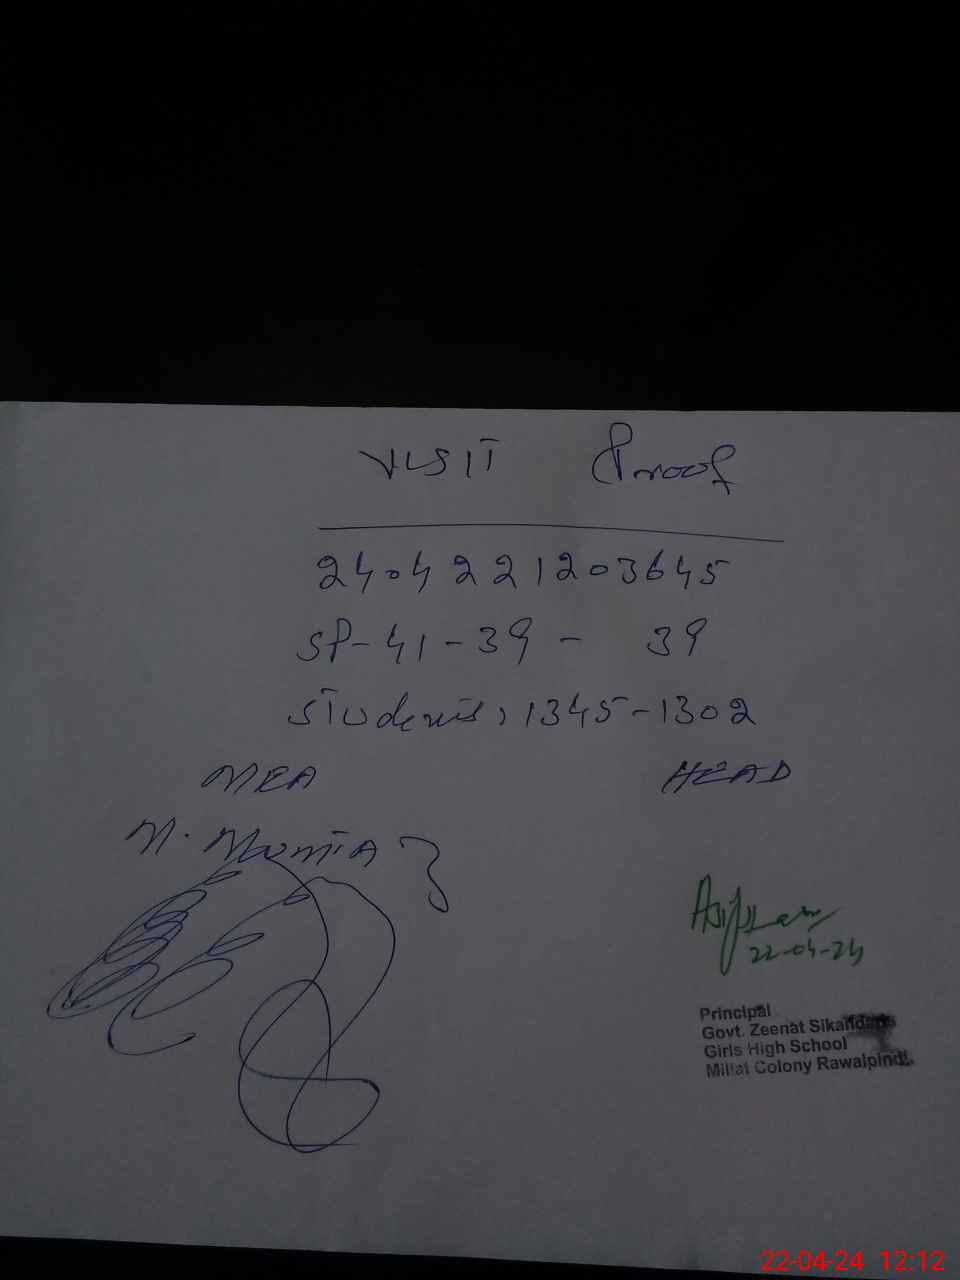 VISIT Proof
2404221203645
SP-41-39 - 39
Students, 1345-1302
MEA HEAD
M. Mumtaz
22-04-24
Principal
Govt. Zeenat Sikandar
Girls High School
Millat Colony Rawalpindi.
22-04-24 12:12